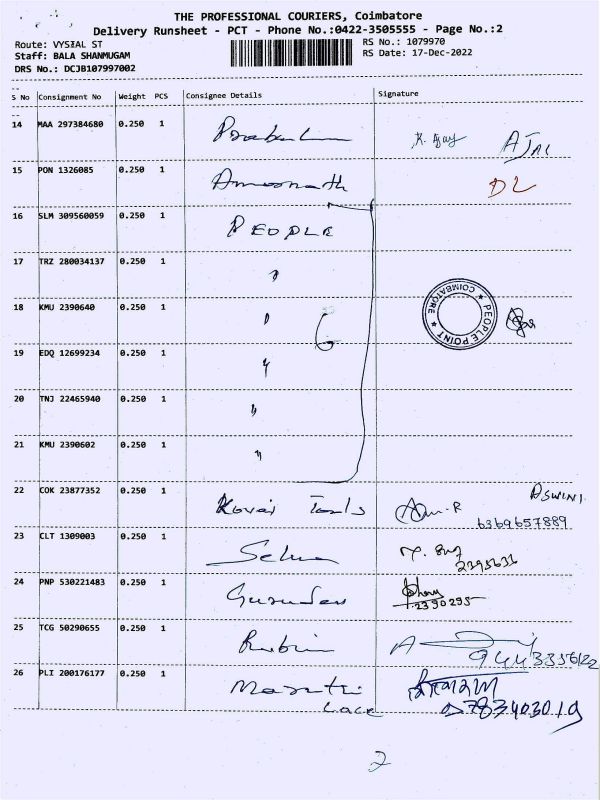 THE PROFESSIONAL COURIERS, Coimbatore
Delivery Runsheet - PCT - Phone No.:0422-3505555 - Page No.:2
Route: VYSIAL ST RS No.: 1079970
Staff: BALA SHANMUGAM RS Date: 17-Dec-2022
DRS No.: DCJB107997002
S No Consignment No Weight PCS Consignee Details Signature
14 MAA 297384680 0.250 1
15 PON 1326085 0.250 1 DL
16 SLM 309560059 0.250 1 PEOPLE
17 TRZ 280034137 0.250 1 "
18 KMU 2390640 0.250 1 " 6
PEOPLE POINT * COIMBATORE *
19 EDQ 12699234 0.250 1 "
20 TNJ 22465940 0.250 1 "
21 KMU 2390602 0.250 1 "
22 COK 23877352 0.250 1 Kovai Tools ASWINI
6369657889
23 CLT 1309003 0.250 1 Selva
2395631
24 PNP 530221483 0.250 1 Gurudev
2390295
25 TCG 50290655 0.250 1 Rubin
26 PLI 200176177 0.250 1 Maruthi
Lace
2